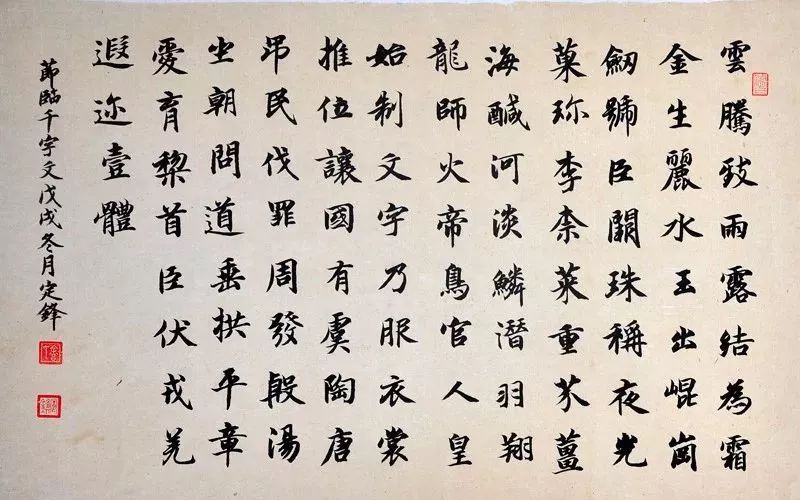 雲騰致雨露結為霜
金生麗水玉出崐崗
劔號巨闕珠稱夜光
菓珎李柰菜重芥薑
海鹹河淡鱗潛羽翔
龍師火帝鳥官人皇
始制文字乃服衣裳
推位讓國有虞陶唐
弔民伐罪周發殷湯
坐朝問道垂拱平章
愛育黎首臣伏戎羌
遐迩壹體
節臨千字文戊戌冬月定鋒